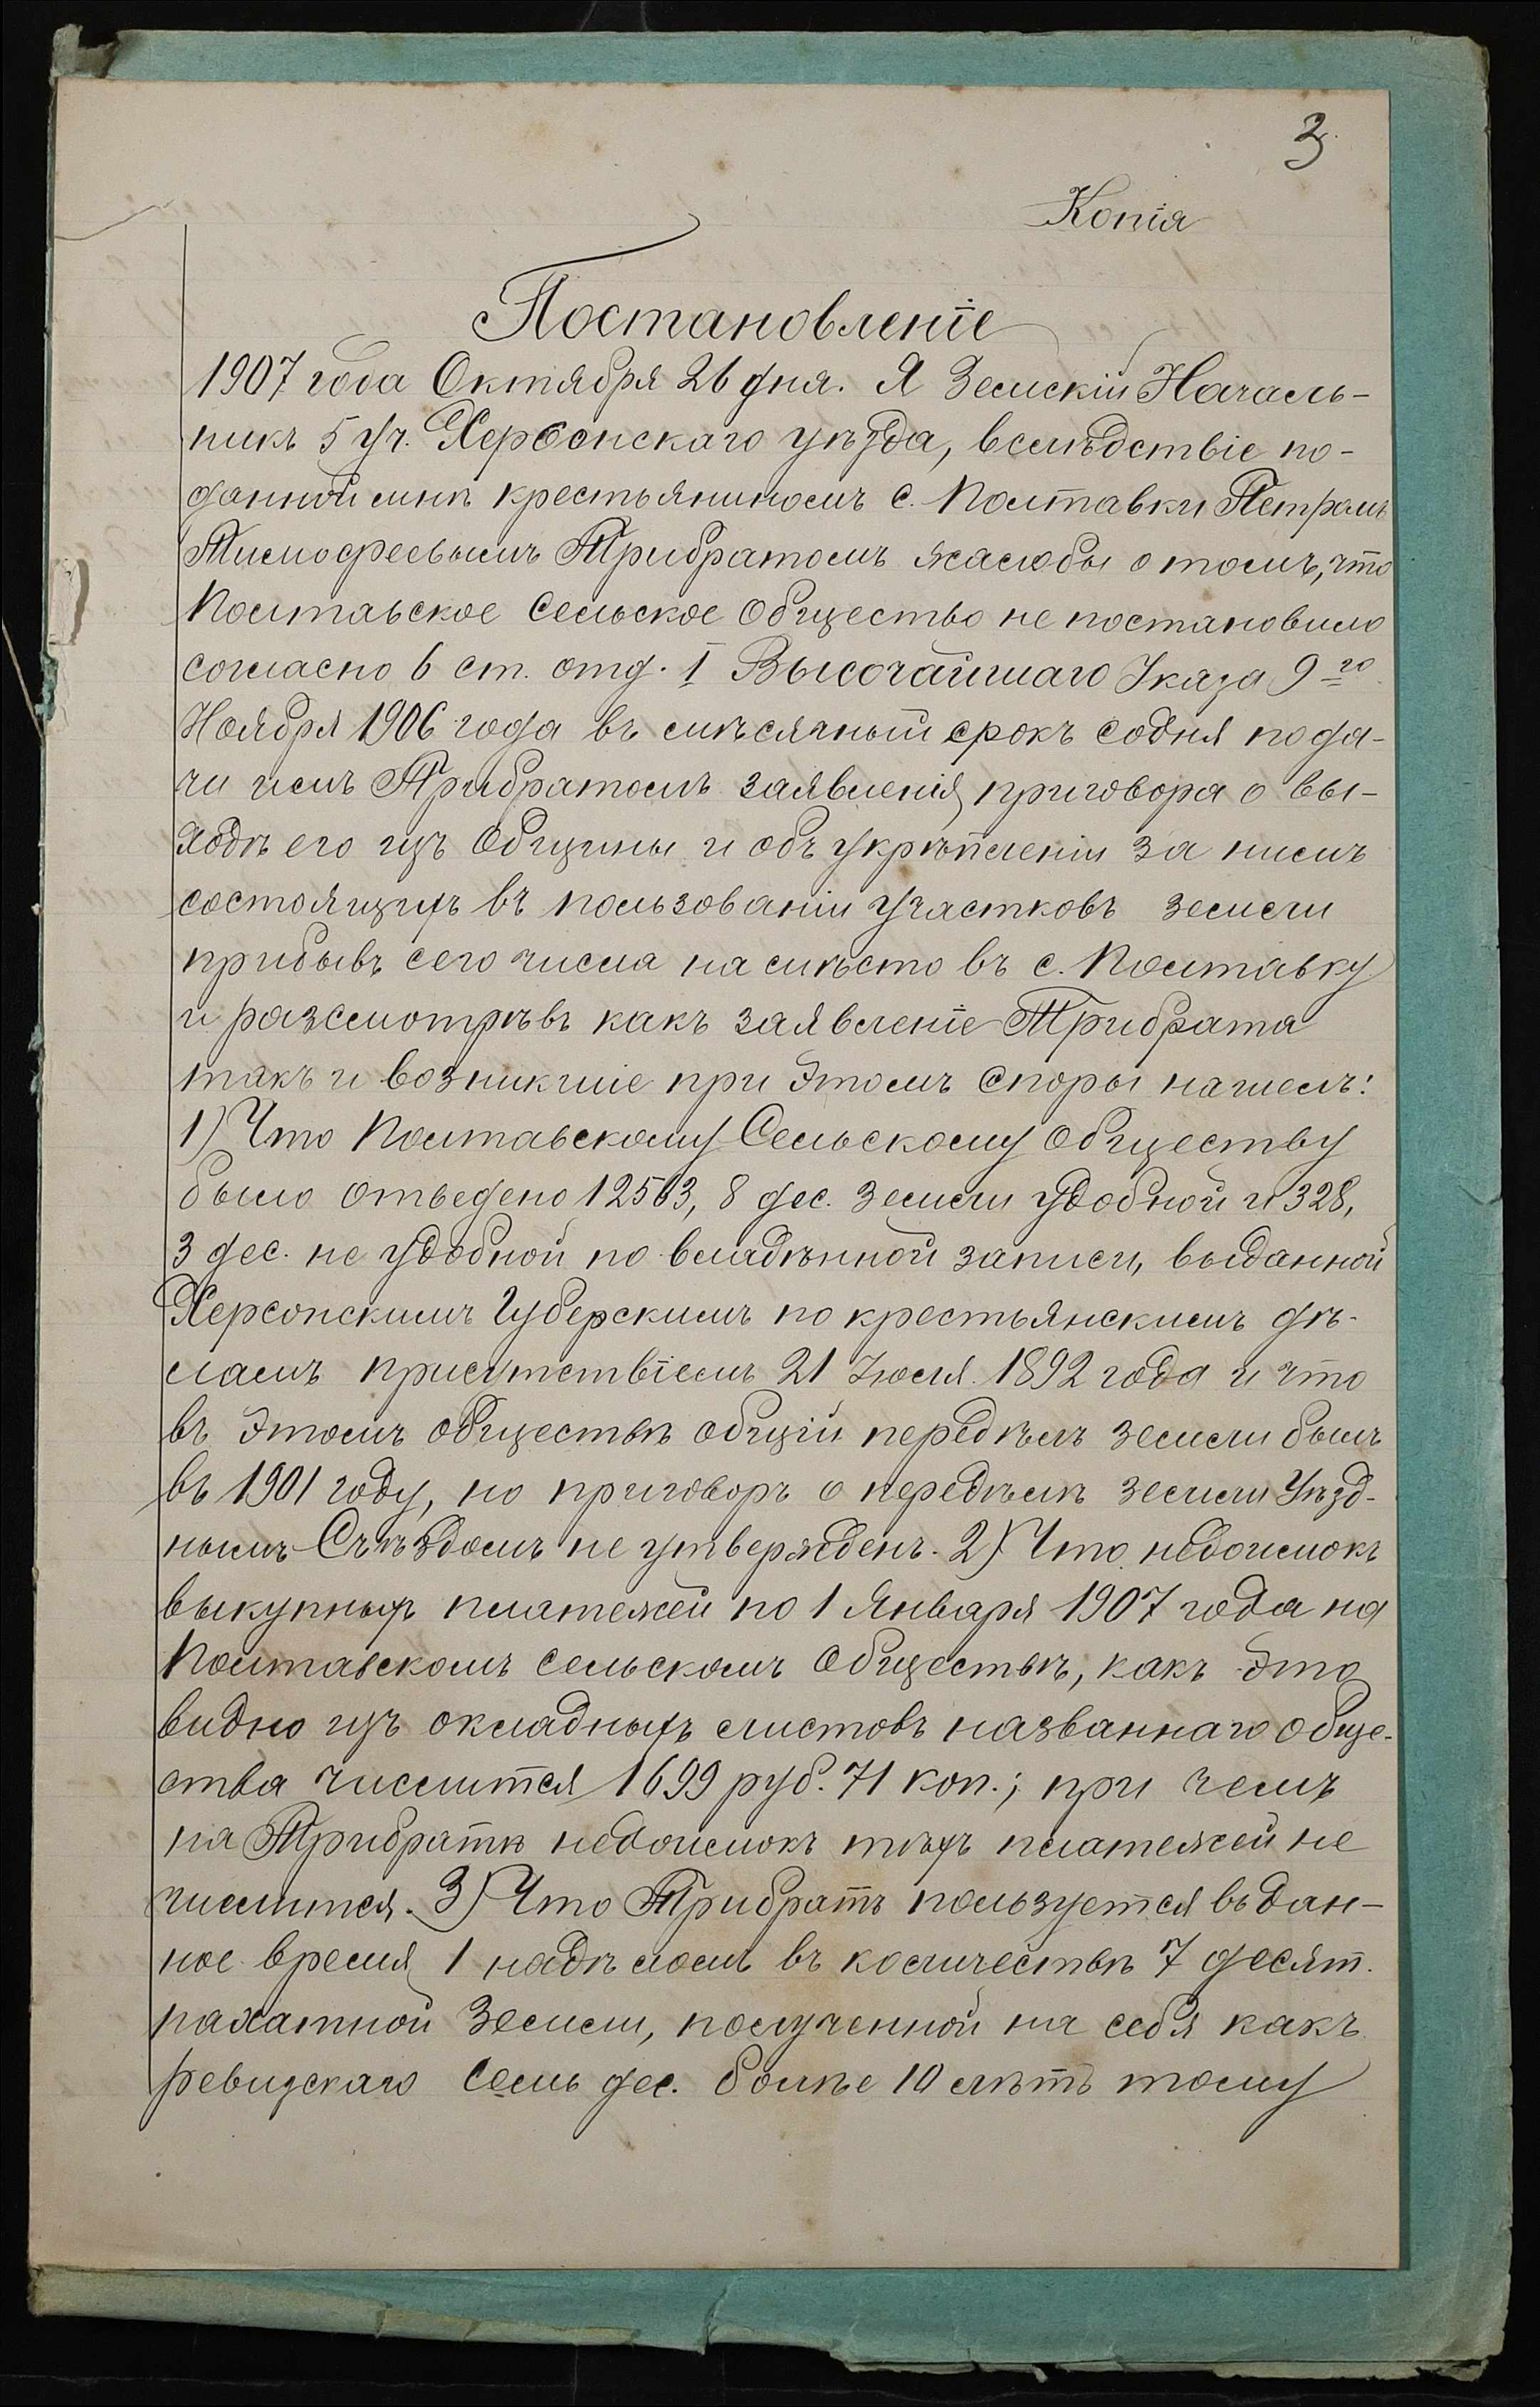 3
Копія
Постановленіе
1907 года Октября 26 дня. Я Земскій Началь-
никъ 5 уч. Херсонскаго уѣзда, вслѣдствіе по-
данной мнѣ крестьяниномъ с. Полтавки Петромъ
Тимофеевымъ Трибратомъ жалобы о томъ, что
Полтавское Сельское Общество не постановило
согласно 6 ст. отд. I Высочайшаго Указа 9го
Ноября 1906 года въ мѣсячный срокъ со дня пода-
чи имъ Трибратомъ заявленія, приговора о вы-
ходѣ его изъ Общины и объ укрѣпленіи за нимъ
состоящихъ въ пользованіи участковъ земли
прибывъ сего числа на мѣсто въ с. Полтавку
и разсмотрѣвъ какъ заявленіе Трибрата
такъ и возникшіе при этомъ споры нашелъ:
1) Что Полтавскому Сельскому Обществу
было отведено 12563, 8 дес. земли удобной и 328,
3 дес. не удобной по владѣнной записи, выданной
Херсонскимъ Губерскимъ по крестьянскимъ дѣ-
ламъ присутствіемъ 21 Іюля 1892 года и что
въ этомъ обществѣ общій передѣлъ земли былъ
въ 1901 году, но приговоръ о передѣлѣ земли Уѣзд-
нымъ Съѣздомъ не утвержденъ. 2) Что недоимокъ
выкупныхъ платежей по 1 Января 1907 года на
Полтавскомъ сельскомъ Обществѣ, какъ это
видно изъ окладныхъ листовъ названнаго обще-
ства числится 1699 руб. 71 коп.; при чемъ
на Трибратѣ недоимокъ тѣхъ платежей не
числится. 3) Что Трибратъ пользуется въ дан-
ное время 1 надѣломъ въ количествѣ 7 десят.
пахатной земли, полученной на себя какъ
ревизскаго семь дес. болѣе 10 лѣтъ тому